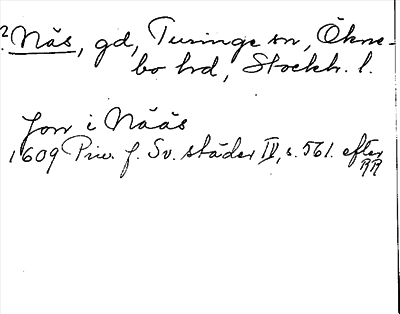 ? Näs, gd, Turinge sn, Ökne-
bo hd, Stockh. l.
Jon i Nääs
1609 Priv. f. Sv. städer IV, s. 561. efter
RA